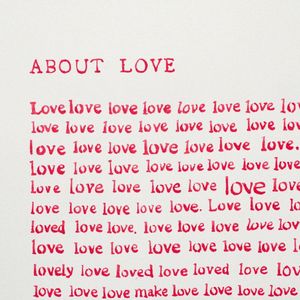 ABOUT LOVE
Love love love love love love love
love love love love love love love
love love love love love love.
love love love love love love love love
love love love love love love love
love love love love love. Love love
loved love love. love love love love
love love love love love love love
lovely love loved love loved love love
love love love make love love love love